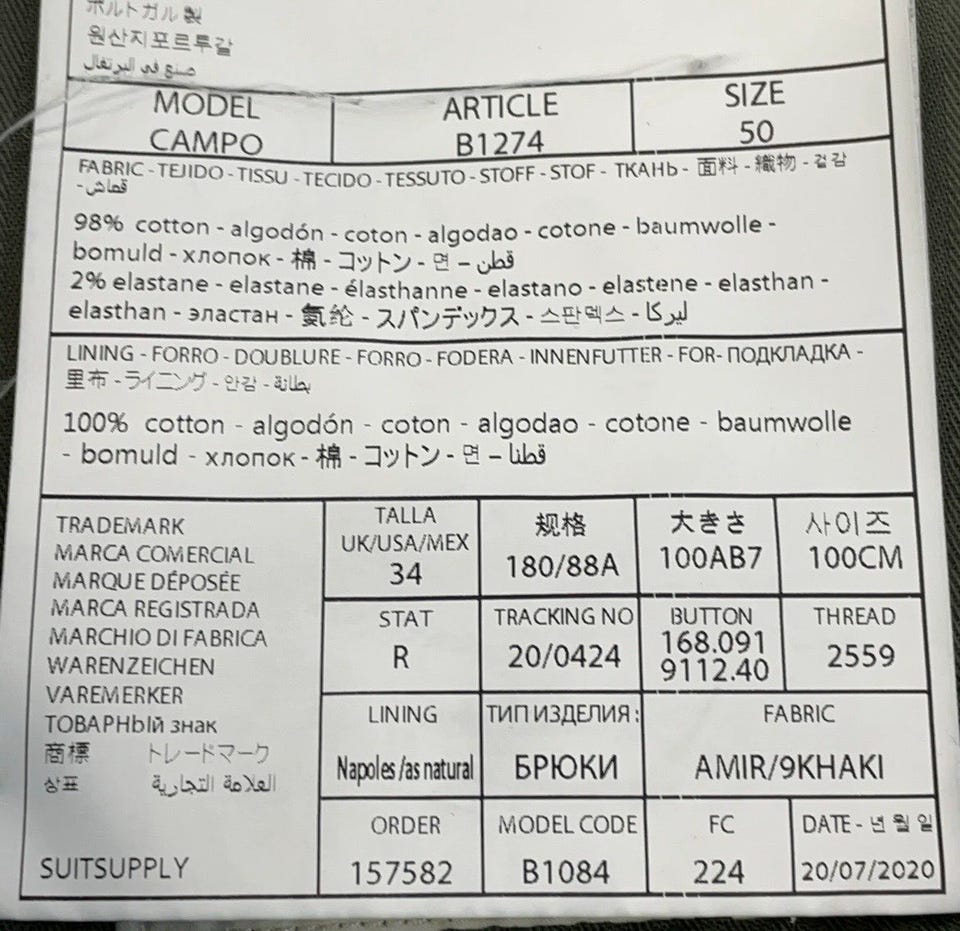 ポルトガル製
원산지포르투갈
صنع في البرتغال
MODEL
CAMPO
ARTICLE
B1274
SIZE
50
FABRIC - TEJIDO - TISSU - TECIDO - TESSUTO - STOFF - STOF - ТКАНЬ - 面料 - 織物 - 겉감
- قماش
98% cotton - algodón - coton - algodao - cotone - baumwolle -
bomuld - хлопок - 棉 - コットン - 면 – قطن
2% elastane - elastane - élasthanne - elastano - elastene - elasthan -
elasthan - эластан - 氨纶 - スパンデックス - 스판덱스 - ليركا
LINING - FORRO - DOUBLURE - FORRO - FODERA - INNENFUTTER - FOR- ПОДКЛАДКА -
里布 - ライニング - 안감 - بطانة
100% cotton - algodón - coton - algodao - cotone - baumwolle
- bomuld - хлопок - 棉 - コットン - 면 – قطنا
TRADEMARK
MARCA COMERCIAL
MARQUE DÉPOSÉE
MARCA REGISTRADA
MARCHIO DI FABRICA
WARENZEICHEN
VAREMERKER
ТОВАРНЫЙ знак
商標 トレードマーク
상표 العلامة التجارية
SUITSUPPLY
TALLA
UK/USA/MEX
34
规格
180/88A
大きさ
100AB7
사이즈
100CM
STAT
R
TRACKING NO
20/0424
BUTTON
168.091
9112.40
THREAD
2559
LINING
Napoles /as natural
ТИП ИЗДЕЛИЯ:
БРЮКИ
FABRIC
AMIR/9KHAKI
ORDER
157582
MODEL CODE
B1084
FC
224
DATE - 년 월 일
20/07/2020